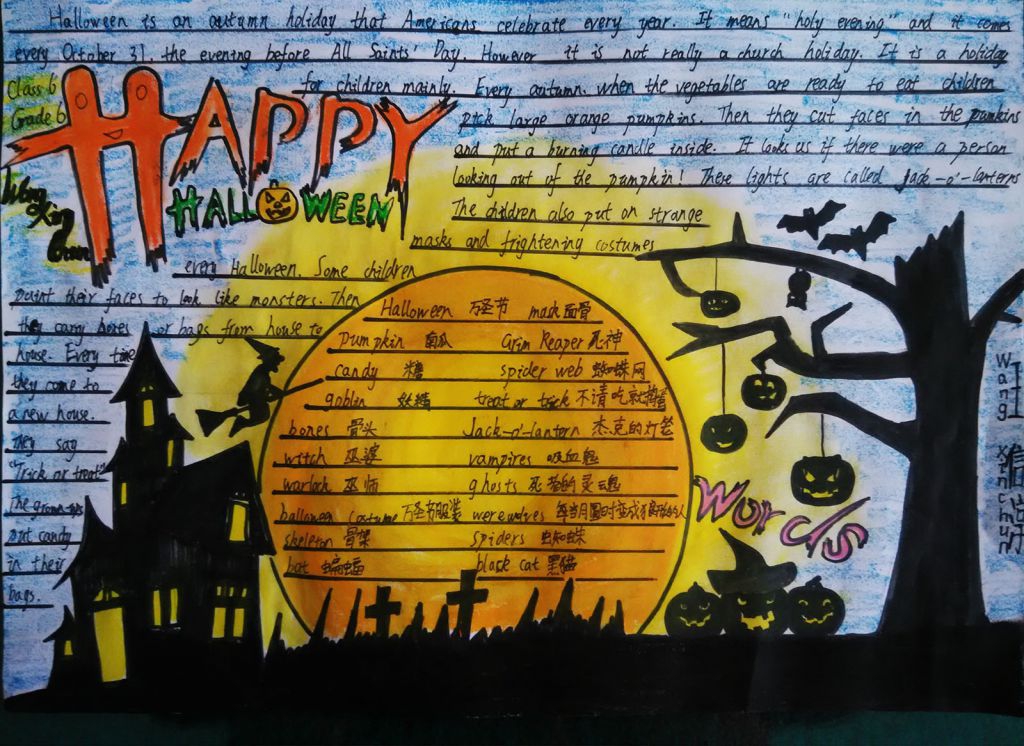 Halloween is an autumn holiday that Americans celebrate every year. It means "holy evening" and it comes
every October 31, the evening before All Saints' Day. However it is not really a church holiday. It is a holiday
for children mainly. Every autumn. when the vegetables are ready to eat children
pick large orange pumpkins. Then they cut faces in the pumkins
and put a burning candle inside. It looks as if there were a person
looking out of the pumpkin! These lights are called Jack-o'-lanterns
The children also put on strange
masks and frightening costumes
every Halloween. Some children
paint their faces to look like monsters. Then
they carry boxes or bags from house to
house. Every time
they come to
a new house.
They say
"Trick or treat"
The grown-ups
put candy
in their
bags.
Class 6
Grade 6
HAPPY
HALLOWEEN
Halloween 万圣节 mask 面骨
Pumpkin 南瓜 Grim Reaper 死神
candy 糖 spider web 蜘蛛网
goblin 妖精 treat or trick 不请吃就捣蛋
bones 骨头 Jack-o'-lantern 杰克的灯笼
witch 巫婆 vampires 吸血鬼
warlock 巫师 ghosts 死者的灵魂
halloween costume 万圣节服装 werewolves 每当月圆时变成的人
skeleton 骨架 spiders 蜘蛛
bat 蝙蝠 black cat 黑猫
Words
Wang